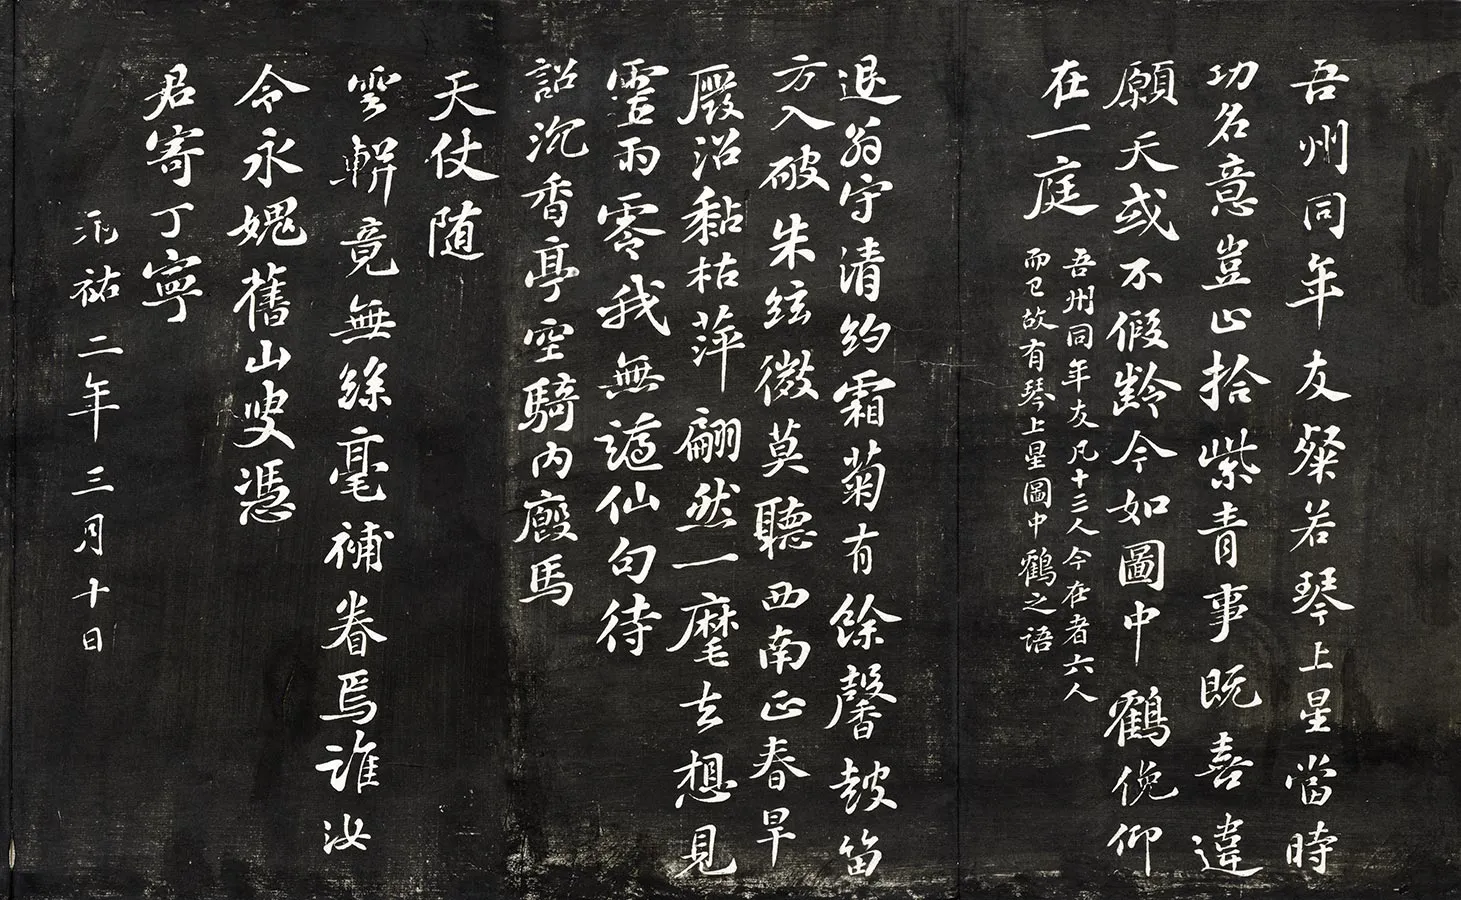 吾州同年友粲若琴上星當時
功名意豈止拾紫青事既喜違
願天或不假齡今如圖中鶴俛仰
在一庭
吾州同年友凡十三人今在者六人
而已故有琴上星圖中鶴之語
退翁守清約霜菊有餘馨鼓笛
方入破朱絃微莫聽西南正春旱
廢沼黏枯萍翩然一麾去想見
靈雨零我無謫仙句待
詔沉香亭空騎內廄馬
天仗随
雲輧竟無絲毫補眷焉誰汝
令永媿舊山叟憑
君寄丁寧
元祐二年三月十日